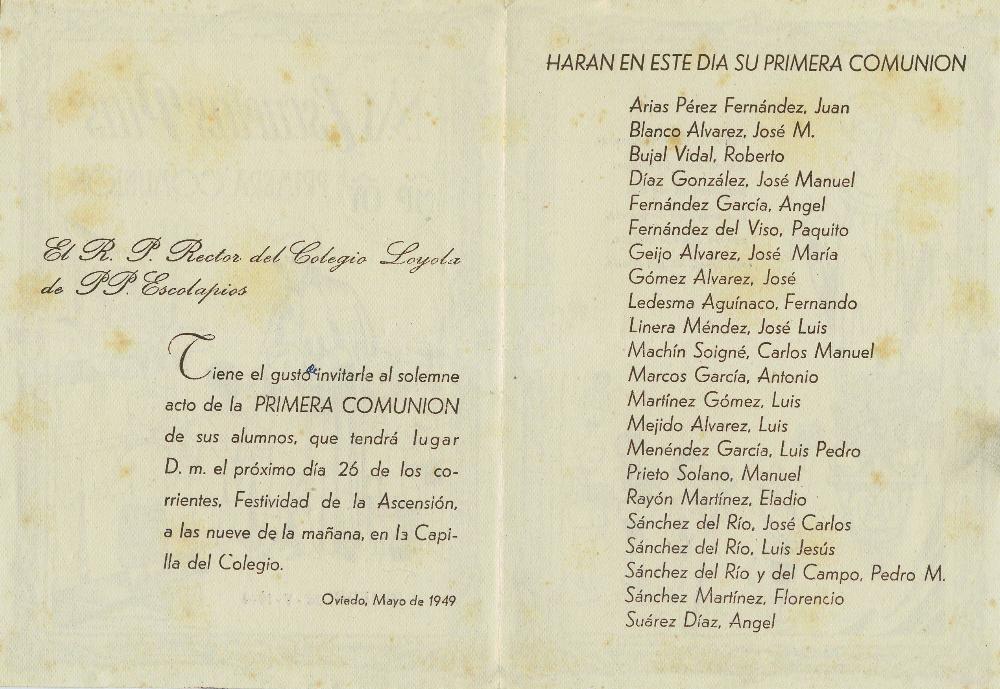 El R. P. Rector del Colegio Loyola
de PP. Escolapios
Tiene el gusto de invitarle al solemne
acto de la PRIMERA COMUNION
de sus alumnos, que tendrá lugar
D. m. el próximo día 26 de los co-
rrientes, Festividad de la Ascensión,
a las nueve de la mañana, en la Capi-
lla del Colegio.
Oviedo, Mayo de 1949
HARAN EN ESTE DIA SU PRIMERA COMUNION
Arias Pérez Fernández, Juan
Blanco Alvarez, José M.
Bujal Vidal, Roberto
Díaz González, José Manuel
Fernández García, Angel
Fernández del Viso, Paquito
Geijo Alvarez, José María
Gómez Alvarez, José
Ledesma Aguínaco, Fernando
Linera Méndez, José Luis
Machín Soigné, Carlos Manuel
Marcos García, Antonio
Martínez Gómez, Luis
Mejido Alvarez, Luis
Menéndez García, Luis Pedro
Prieto Solano, Manuel
Rayón Martínez, Eladio
Sánchez del Río, José Carlos
Sánchez del Río, Luis Jesús
Sánchez del Río y del Campo, Pedro M.
Sánchez Martínez, Florencio
Suárez Díaz, Angel